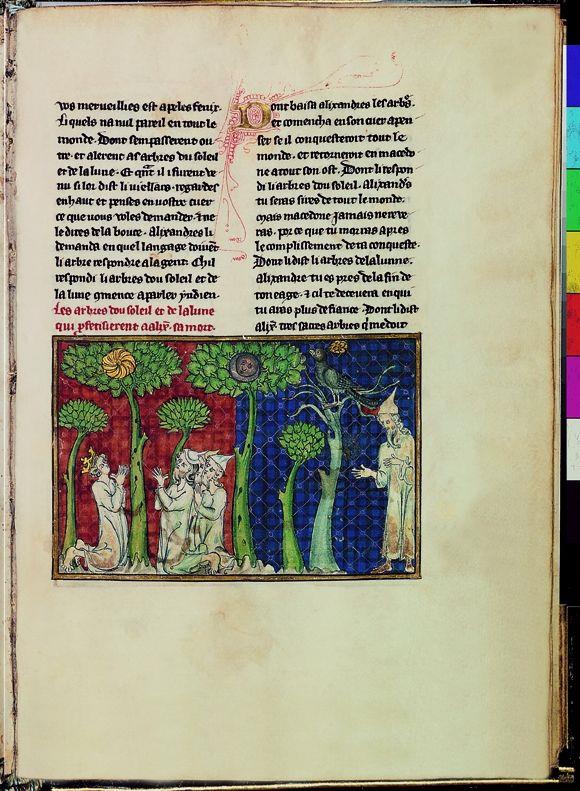 vos merveilles est apeles fenix.
li quels na nul pareil en tout le
monde. Dont sen passerent ou
tre. et alerent as arbres du soleil
et de la lune. Et qnt il i furent ve
nu si lor dist li viellars. regardes
en haut et penses en vostre cuer
ce que vous voles demander. et ne
le dites de la bouce. Alixandres li
demanda en quel langage doivent
li arbre respondre a la gent. Chil
respondi li arbres dou soleil et de
la lune 9mence a parler yndien.
Les arbres dou soleil et de la lune
qui pfetisierent a alix. sa mort.
Dont baisa alixandres les arbres.
et comencha en son cuer a pen
ser se il conquesteroit tout le
monde. et retorneroit en macedo
ne a tout son ost. Dont li respon
di li arbres dou soleil. Alixandres
tu seras sires de tout le monde.
mais macedone jamais ne verr
ras. por ce que tu morras apres
le complissement de ta conqueste.
Dont li dist li arbres de la lunne.
Alixandre tu es pres de la fin de
ton eage. et cil te decevera en qui
tu aras plus de fiance. Dont li dist
alix. tres saires arbres q me doit